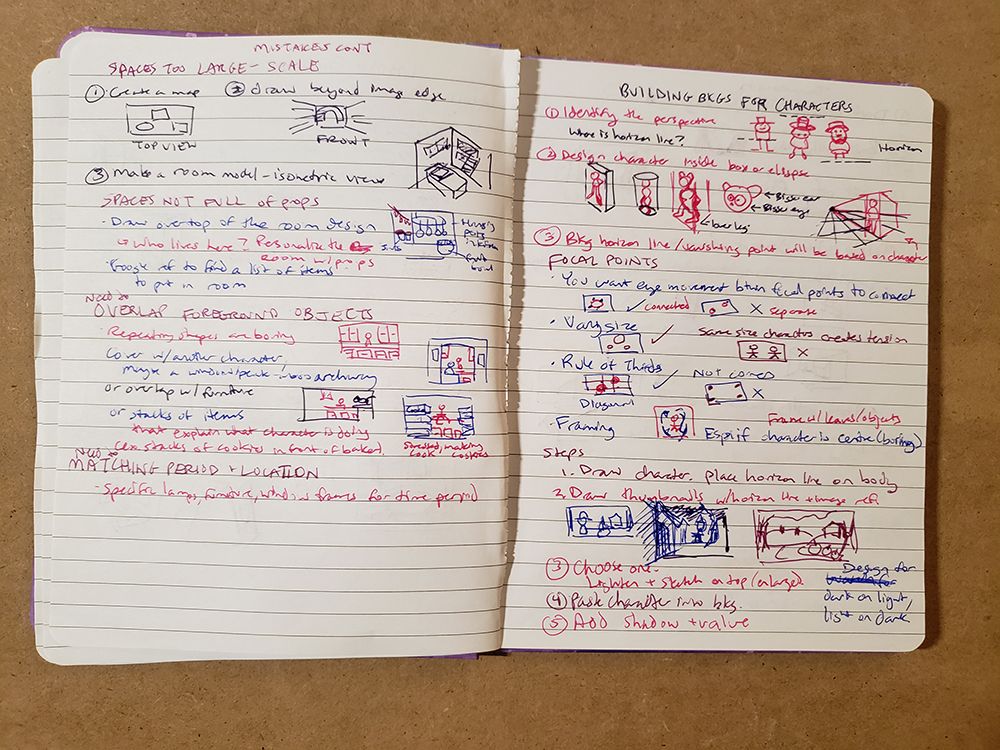 MISTAKES CONT
SPACES TOO LARGE - SCALE
① Create a map ② draw beyond image edge
TOP VIEW
FRONT
③ Make a room model - isometric view
SPACES NOT FULL of props
· Draw overtop of the room design
→ Who lives here? Personalize the
room w/props
Hanging pots in kitchen
fruit bowl
· Google ref to find a list of items
to put in room
Need to
OVERLAP FOREGROUND OBJECTS
· Repeating shapes are boring
Cover w/another character,
maybe a window/peak inbos archway
or overlap w/ furniture
or stacks of items
that explain what character is doing
(ex stacks of cookies in front of baker)
Stressed, making
cookies
Need to
MATCHING PERIOD + LOCATION
- Specific lamps, furniture, window frames for time period
BUILDING BKGS FOR CHARACTERS
① Identify the perspective
Where is horizon line?
Horizon
② Design character inside box or elispse
← Bigger ear
← Bigger eye
lower leg
③ Bkg horizon line/vanishing point will be based on character
FOCAL POINTS
· You want eye movement btwn focal points to connect
✓ connected X separate
· Vary size ✓ Same size characters creates tension
X
· Rule of Thirds ✓ Not corners
X
Diagonal
· Framing
Frame w/ leaves/objects
Esp if character is centre (boring)
Steps
1. Draw character, place horizon line on body
2. Draw thumbnails w/horizon line + image ref.
③ Choose one -
Lighten + sketch on top (enlarge)
④ Paste character into bkg.
⑤ Add shadow + value
Design for
dark on light,
light on dark